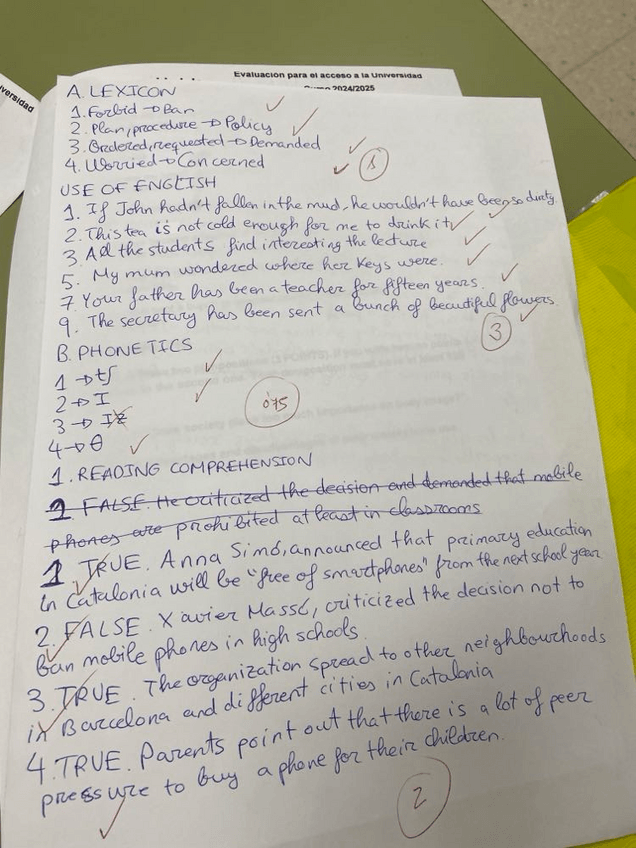 versidad
Evaluación para el acceso a la Universidad
Curso 2024/2025
A. LEXICON
1. Forbid → Ban
2. Plan, procedure → Policy
3. Ordered, requested → Demanded
4. Worried → Concerned
1
USE OF ENGLISH
1. If John hadn't fallen in the mud, he wouldn't have been so dirty.
2. This tea is not cold enough for me to drink it
3. All the students find interesting the lecture
5. My mum wondered where her keys were.
7. Your father has been a teacher for fifteen years.
9. The secretary has been sent a bunch of beautiful flowers.
3
B. PHONETICS
1 → tʃ
2 → I
3 → Iz
4 → θ
0'75
1. READING COMPREHENSION
2. FALSE. He criticized the decision and demanded that mobile
phones are prohibited at least in classrooms
1 TRUE. Anna Simó, announced that primary education
in Catalonia will be "free of smartphones" from the next school year
2. FALSE. Xavier Massó, criticized the decision not to
ban mobile phones in high schools.
3. TRUE. The organization spread to other neighbourhoods
in Barcelona and different cities in Catalonia
4. TRUE. Parents point out that there is a lot of peer
pressure to buy a phone for their children.
2